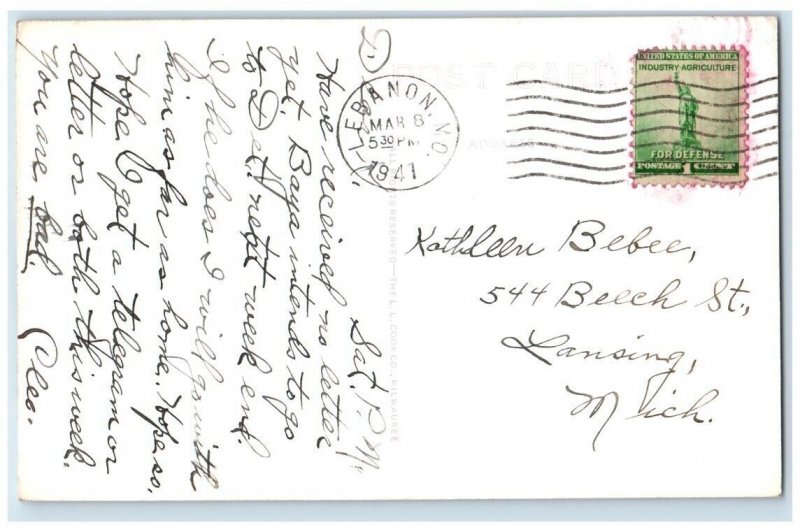 Sat. P.M.
D,
Have received no letter
yet. Baya intends to go
to Det. next week end.
If he does I will go with
him as far as home. Hope so.
Hope I get a telegram or
letter or both this week.
You are bad. Cleo.
POST CARD
ADDRESS
TS RESERVED—THE L. L. COOK CO., MILWAUKEE
LEBANON, MO.
MAR 8
5 30 PM
1941
UNITED STATES OF AMERICA
INDUSTRY AGRICULTURE
FOR DEFENSE
POSTAGE 1 CENT
Kathleen Bebee,
544 Beech St.,
Lansing,
Mich.